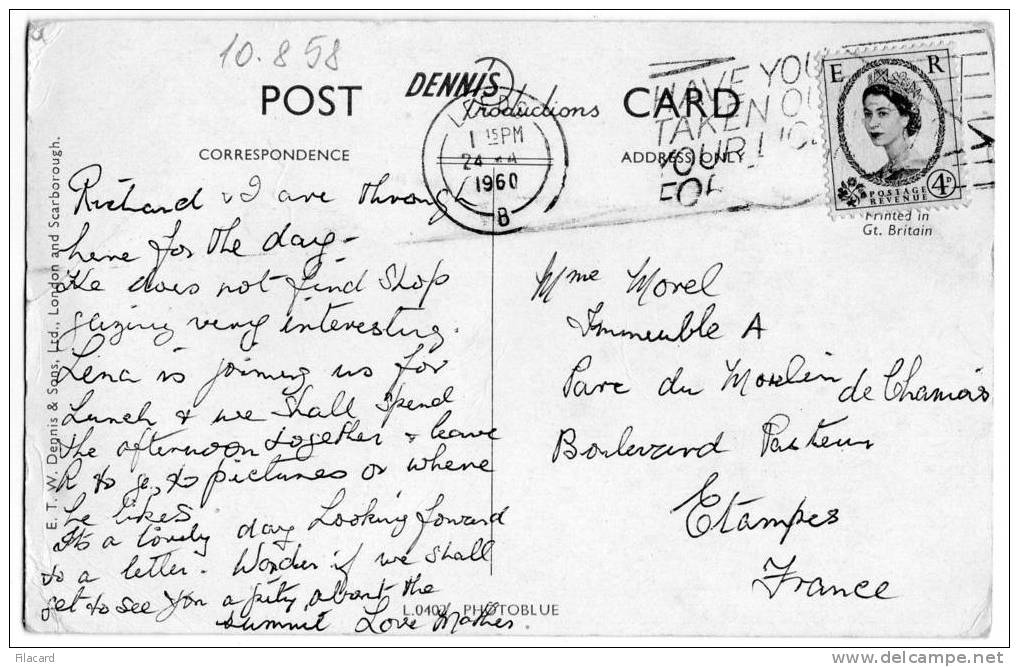 10.8.58
POST CARD
DENNIS Productions
CORRESPONDENCE
ADDRESS ONLY
HAVE YOU
TAKEN OU
YOUR
FOR
1 15PM
24
1960
B
E R
POSTAGE
REVENUE
4D
Printed in
Gt. Britain
E. T. W. Dennis & Sons, Ltd., London and Scarborough.
Richard & I are through
here for the day -
He does not find shop
gazing very interesting.
Lena is joining us for
Lunch & we shall spend
the afternoon together & leave
R to go to pictures or where
he likes.
Its a lovely day Looking forward
to a letter. Wonder if we shall
get to see you a pity about the
summit Love Mother.
Mme Morel
Immeuble A
Parc du Moulin de Chamois
Boulevard Pasteur
Etampes
France
L.0402 PHOTOBLUE
Filacard
www.delcampe.net